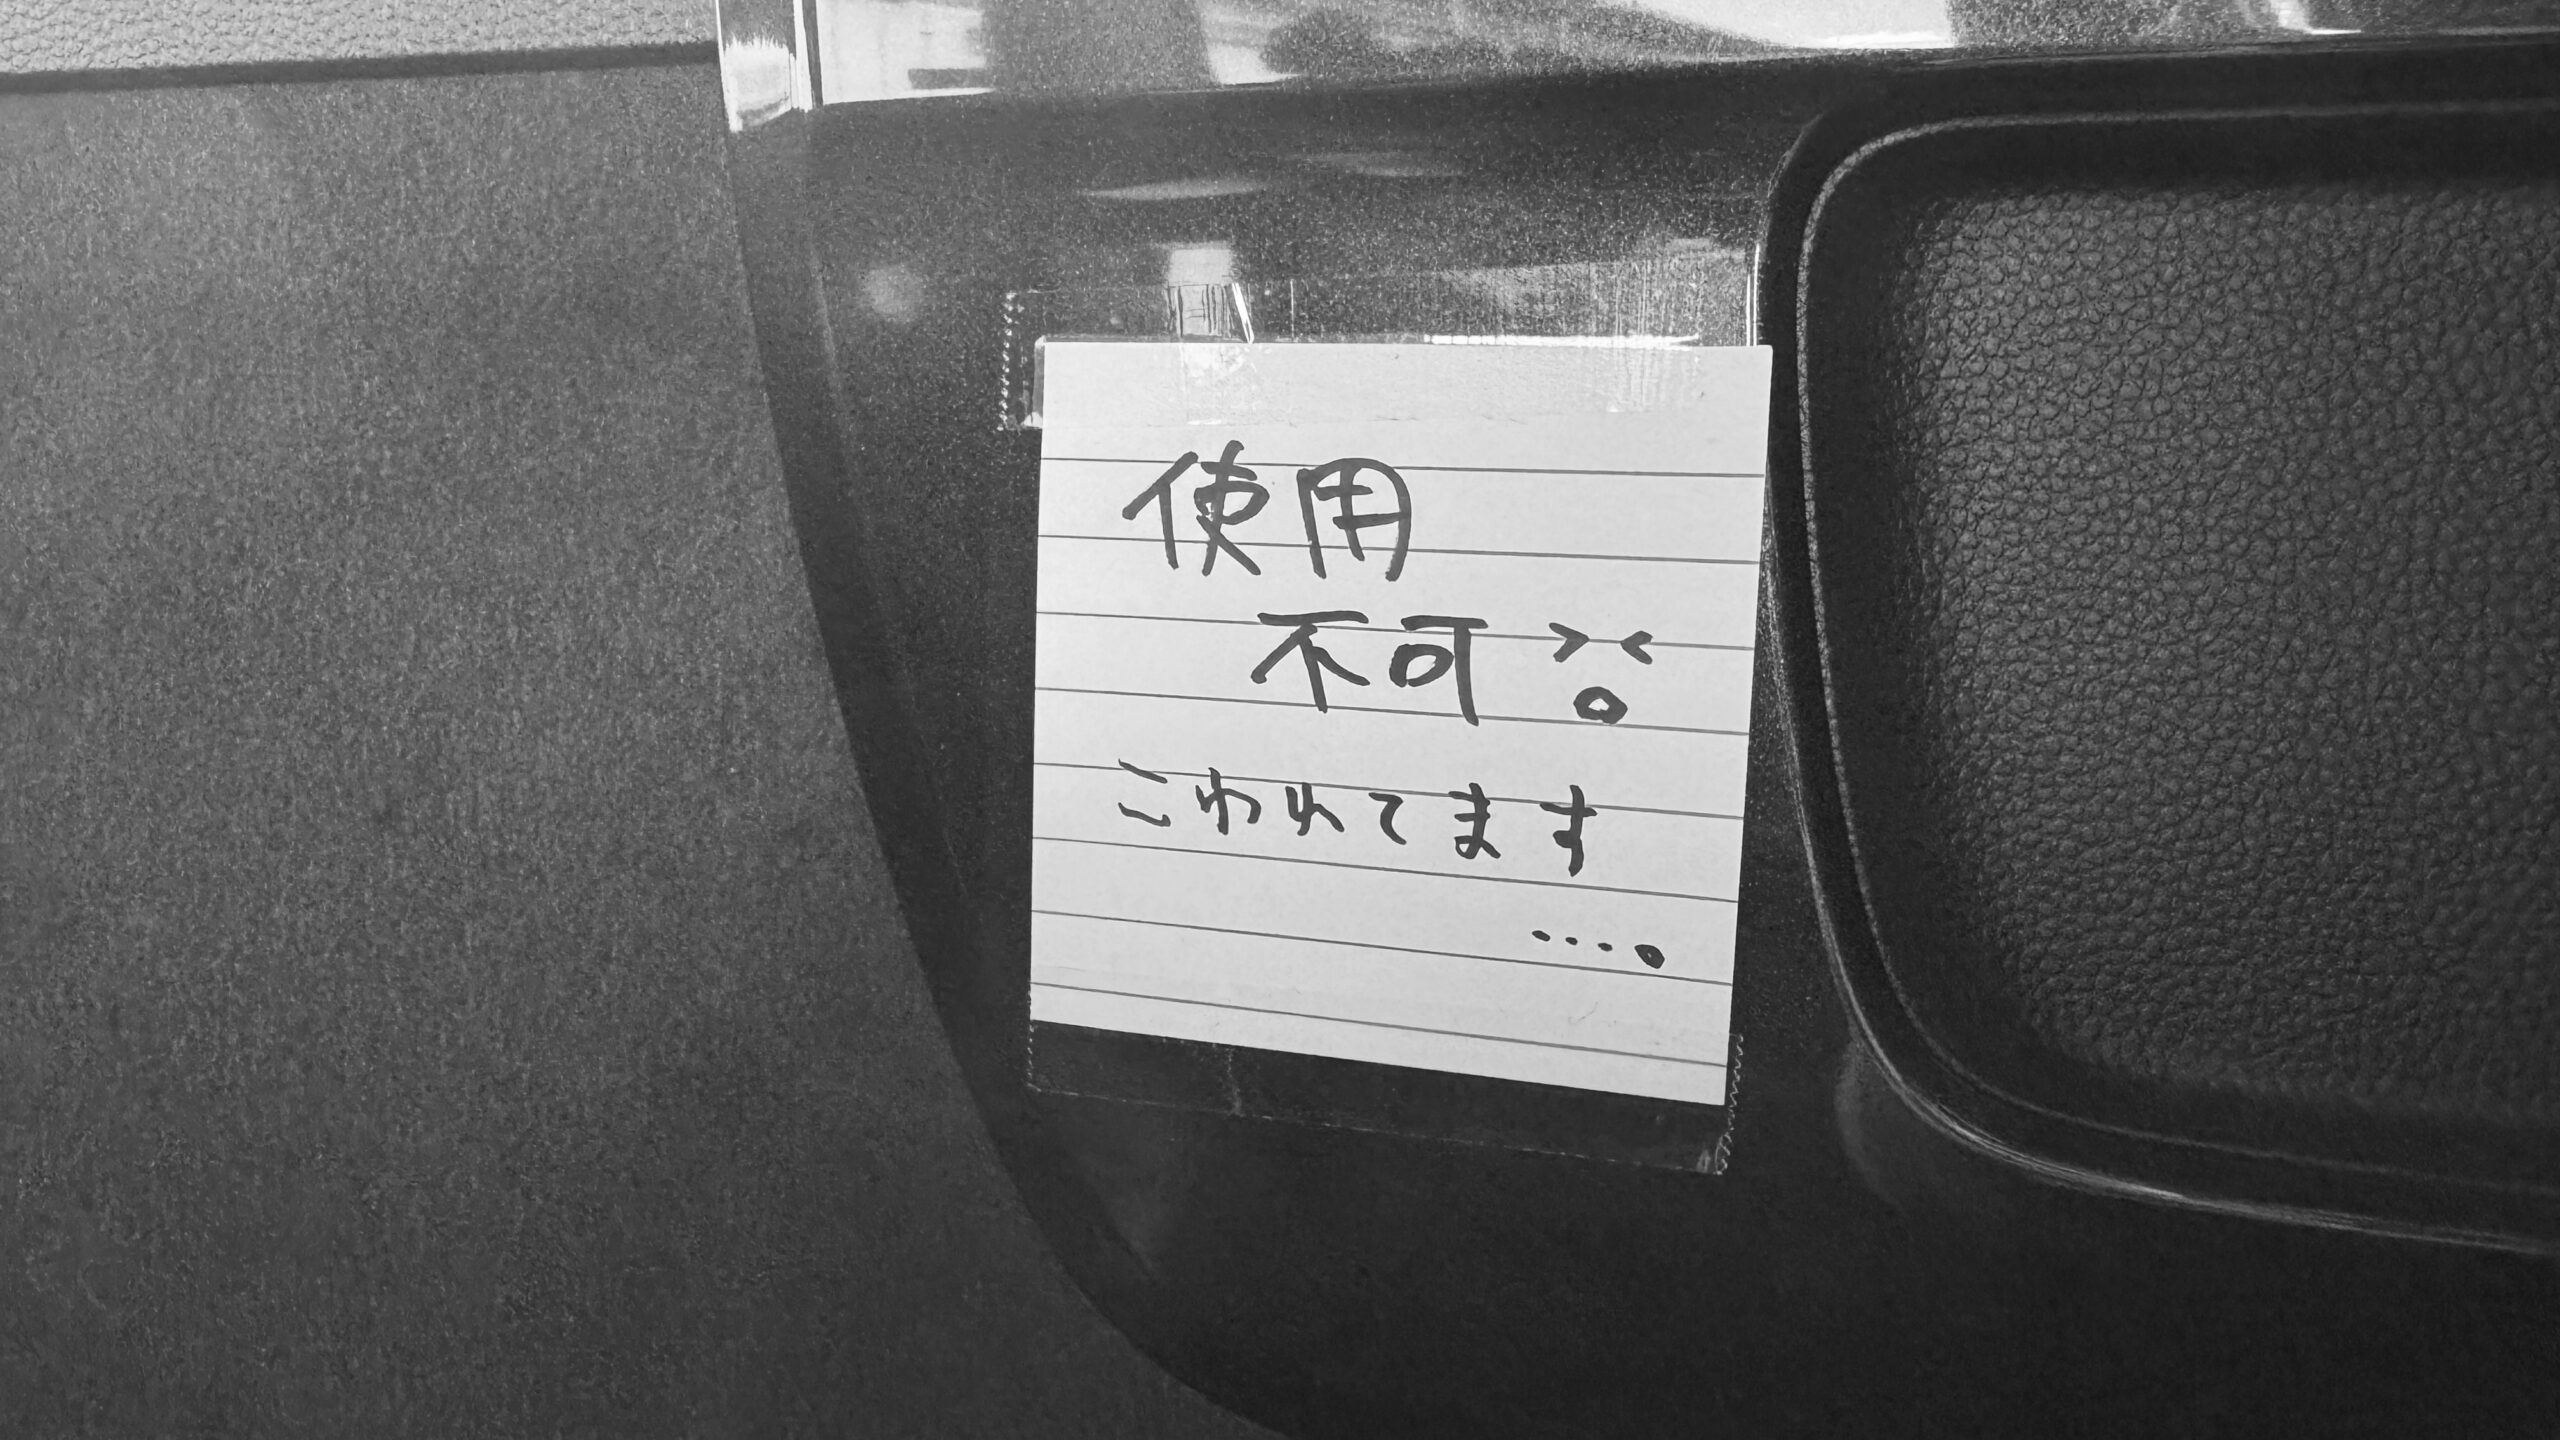 使用
不可 ><。
こわれてます
…。